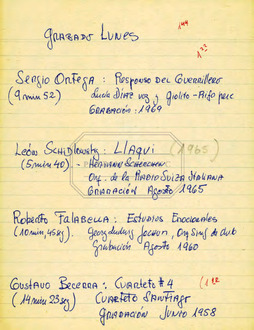 GRABADO LUNES
144
132
Sergio Ortega : Responso del Guerrillero
(9 min 52) Lucía Díaz voz y
GRABACIÓN : 1969
León Schidlowsky : LLaqui (1965)
(5 min 40) - HERMANN SCHERCHEN
Orq. de la RADIO SUIZA ITALIANA
GRABACIÓN Agosto 1965
Roberto Falabella : Estudios Emocionales
(10 min, 45 sg).
Grabación Agosto 1960
Gustavo Becerra : Cuarteto # 4
(14 min 23 sg) CUARTETO SANTIAGO
GRABACIÓN JUNIO 1958